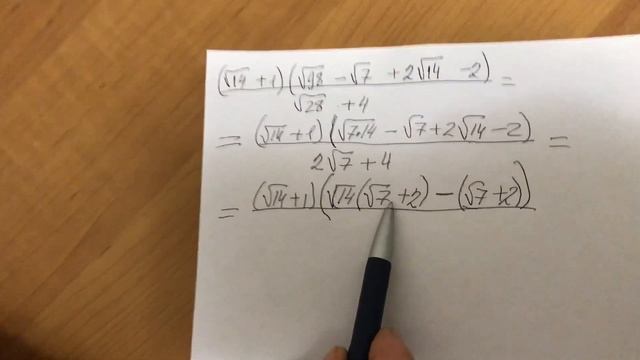 (√14 + 1)(√98 − √7 + 2√14 − 2) =
√28 + 4
= (√14 + 1)(√7·14 − √7 + 2√14 − 2) =
2√7 + 4
= (√14 + 1)(√14(√7 + 2) − (√7 + 2))